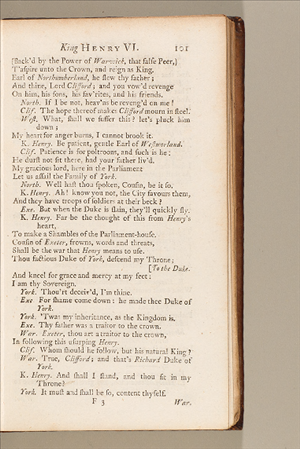 King HENRY VI. 101
[Back'd by the Power of Warwick, that false Peer,]
T'aspire unto the Crown, and reign as King.
Earl of Northumberland, he slew thy father;
And thine, Lord Clifford; and you vow'd revenge
On him, his sons, his fav'rites, and his friends.
North. If I be not, heav'ns be reveng'd on me!
Clif. The hope thereof makes Clifford mourn in steel.
West. What, shall we suffer this? let's pluck him
down;
My heart for anger burns, I cannot brook it.
K. Henry. Be patient, gentle Earl of Westmorland.
Clif. Patience is for poltroons, and such is he:
He durst not sit there, had your father liv'd.
My gracious lord, here in the Parliament
Let us assail the Family of York.
North. Well hast thou spoken, Cousin, be it so.
K. Henry. Ah! know you not, the City favours them,
And they have troops of soldiers at their beck?
Exe. But when the Duke is slain, they'll quickly fly.
K. Henry. Far be the thought of this from Henry's
heart,
To make a Shambles of the Parliament-house.
Cousin of Exeter, frowns, words and threats,
Shall be the war that Henry means to use.
Thou factious Duke of York, descend my Throne;
[To the Duke.
And kneel for grace and mercy at my feet:
I am thy Sovereign.
York. Thou'rt deceiv'd, I'm thine.
Exe For shame come down: he made thee Duke of
York.
York. 'Twas my inheritance, as the Kingdom is.
Exe. Thy father was a traitor to the crown.
War. Exeter, thou art a traitor to the crown,
In following this usurping Henry.
Clif. Whom should he follow, but his natural King?
War. True, Clifford; and that's Richard Duke of
York.
K. Henry. And shall I stand, and thou sit in my
Throne?
York. It must and shall be so, content thyself.
F 3 War.